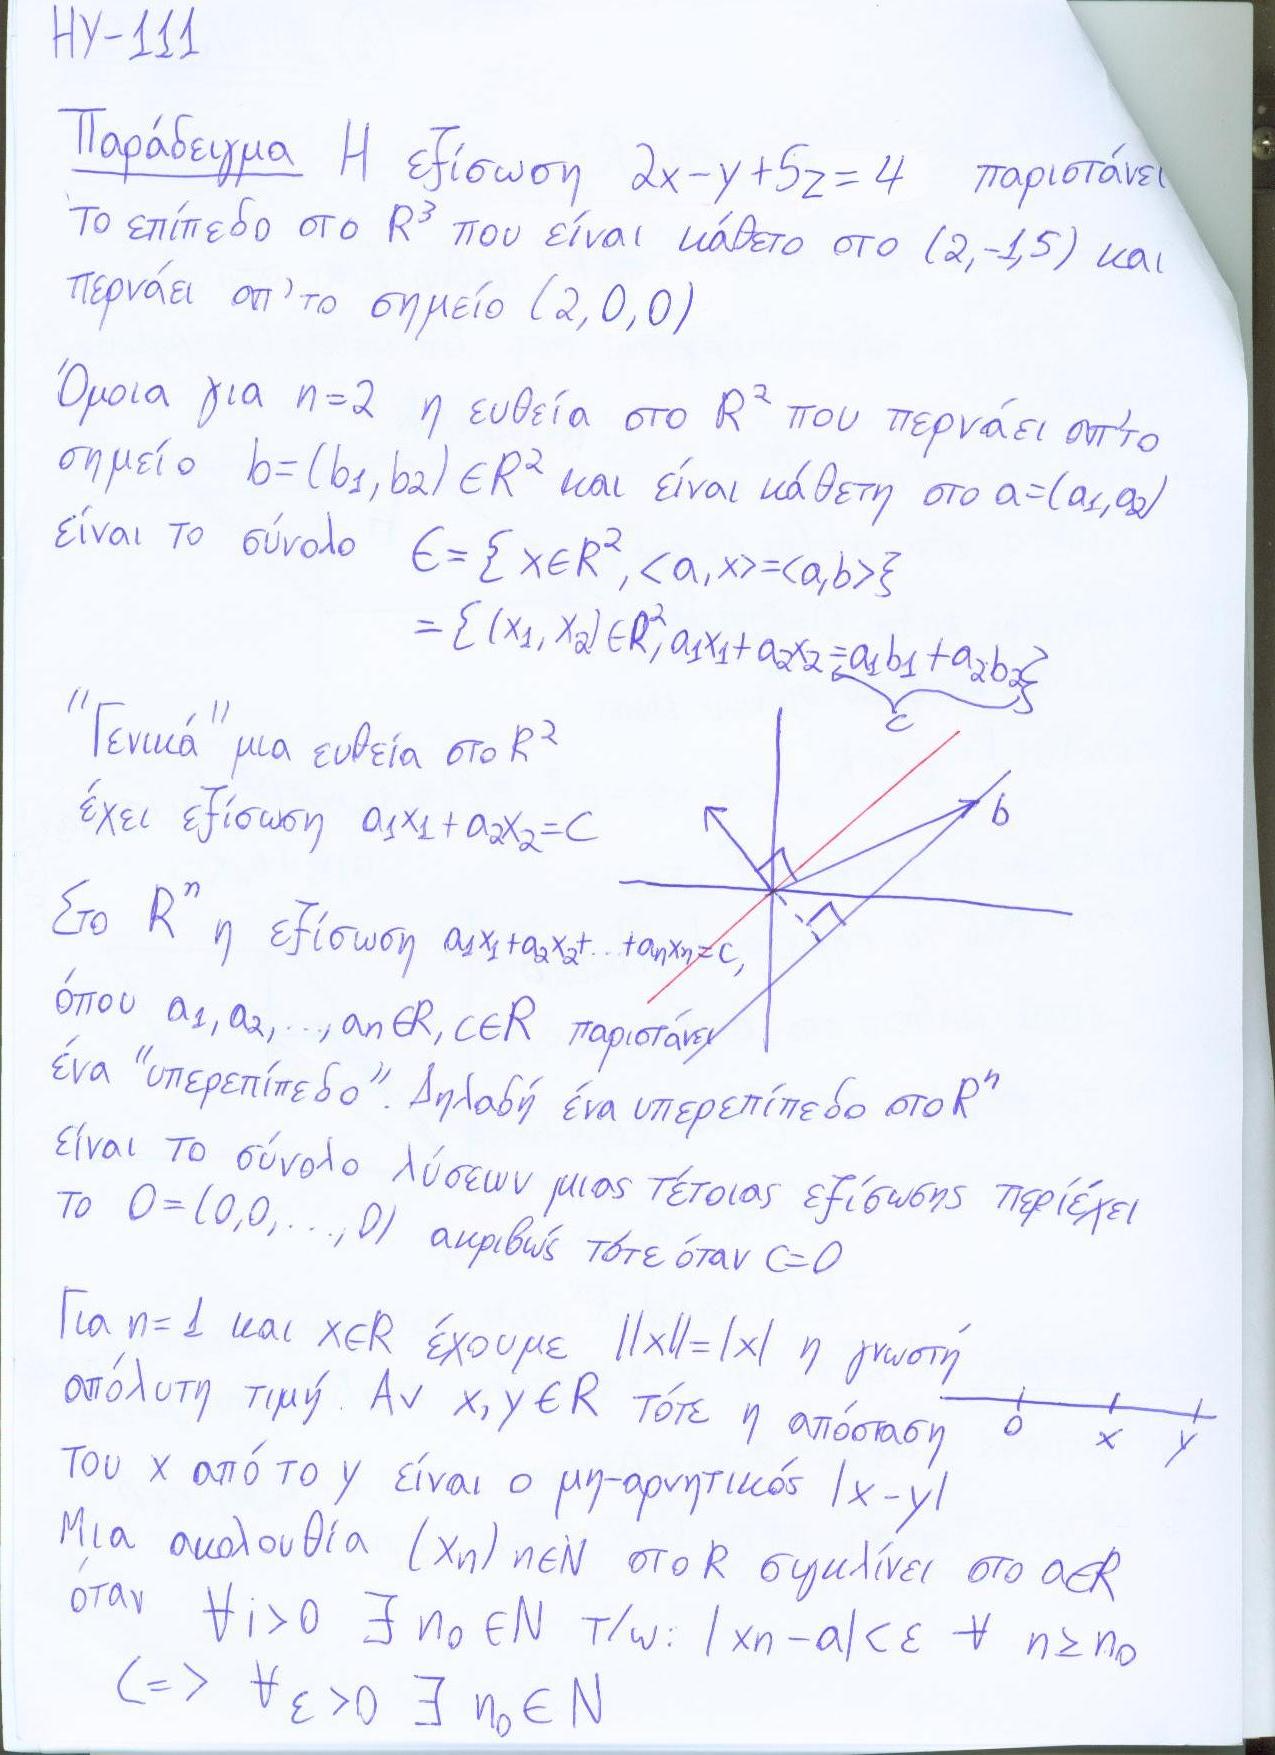 ΗΥ-111
Παράδειγμα Η εξίσωση 2x-y+5z=4 παριστάνει
το επίπεδο στο R³ που είναι κάθετο στο (2,-1,5) και
περνάει απ' το σημείο (2,0,0)
Όμοια για n=2 η ευθεία στο R² που περνάει απ' το
σημείο b=(b₁,b₂)∈R² και είναι κάθετη στο a=(a₁,a₂)
είναι το σύνολο ϵ={x∈R², <a,x>=<a,b>}
={(x₁,x₂)∈R², a₁x₁+a₂x₂=a₁b₁+a₂b₂}
c
"Γενικά" μια ευθεία στο R²
έχει εξίσωση a₁x₁+a₂x₂=c
b
Στο Rⁿ η εξίσωση a₁x₁+a₂x₂+...+aₙxₙ=c,
όπου a₁,a₂,...,aₙ∈R, c∈R παριστάνει
ένα "υπερεπίπεδο". Δηλαδή ένα υπερεπίπεδο στο Rⁿ
είναι το σύνολο λύσεων μιας τέτοιας εξίσωσης περιέχει
το 0=(0,0,...,0) ακριβώς τότε όταν c=0
Για n=1 και x∈R έχουμε ||x||=|x| η γνωστή
απόλυτη τιμή. Αν x,y∈R τότε η απόσταση
0 x y
του x από το y είναι ο μη-αρνητικός |x-y|
Μια ακολουθία (xₙ) n∈N στο R συγκλίνει στο a∈R
όταν ∀i>0 ∃ n₀∈N τ/ω: |xₙ-a|<ε ∀ n≥n₀
(=> ∀ε>0 ∃ n₀∈N